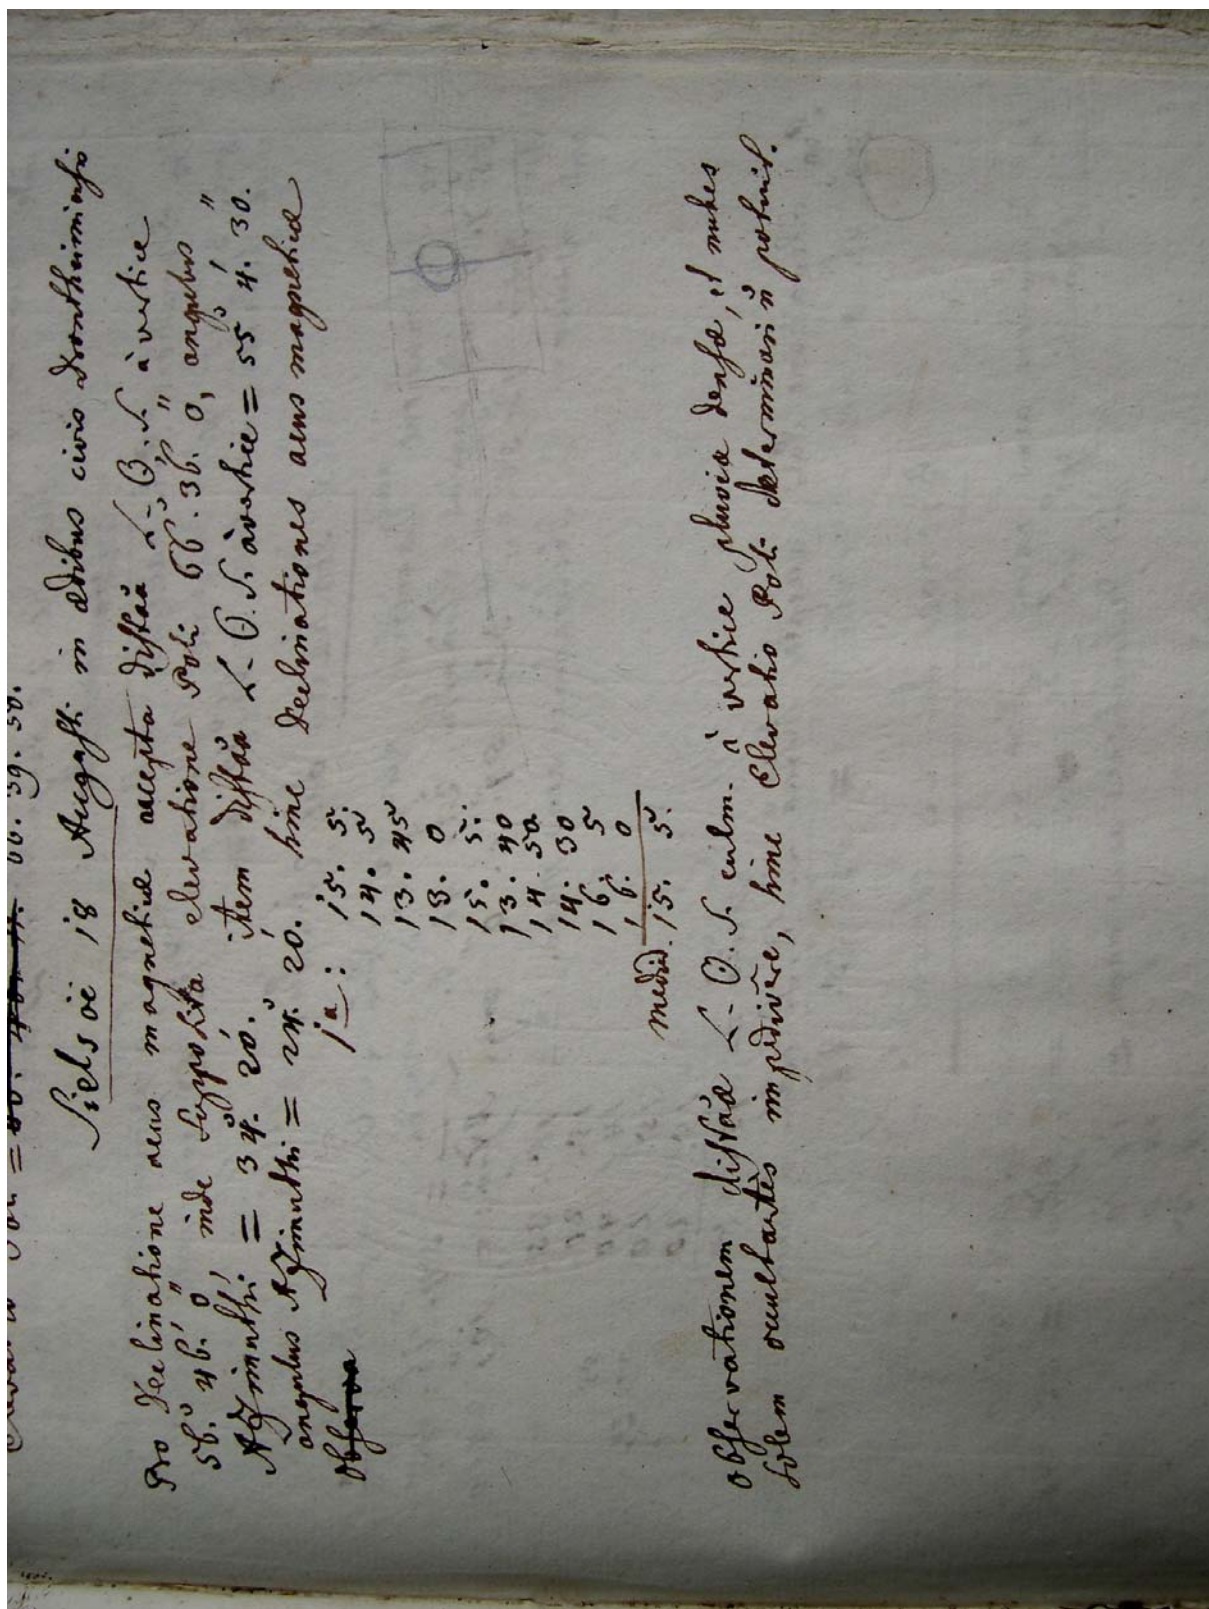 66. 39. 50.
Sielsöe 18 Augusti in ædibus civis Drontheimiensis
Pro declinatione acus magneticæ accepta distãa L. ☉. S. à vertice
56.° 46.' 0", inde supposita elevatione Poli 66.° 36.' 0", angulus
Azimuthi = 34.° 20.' item distãa L. ☉. S. à vertice = 55° 4.' 30."
angulus Azimuthi = 24.° 20.' hinc declinationes acus magneticæ
Observa
1a: 15. 5.
14. 5
13. 45
13. 0
15. 5.
13. 40
14. 50
14. 30
16. 5
16. 0
mediũ. 15. 5.
Observationem distãæ L. ☉. S. culm. à vertice pluvia densa, et nubes
solem occultantes impedivêre, hinc Elevatio Poli determinari ñ potuit.